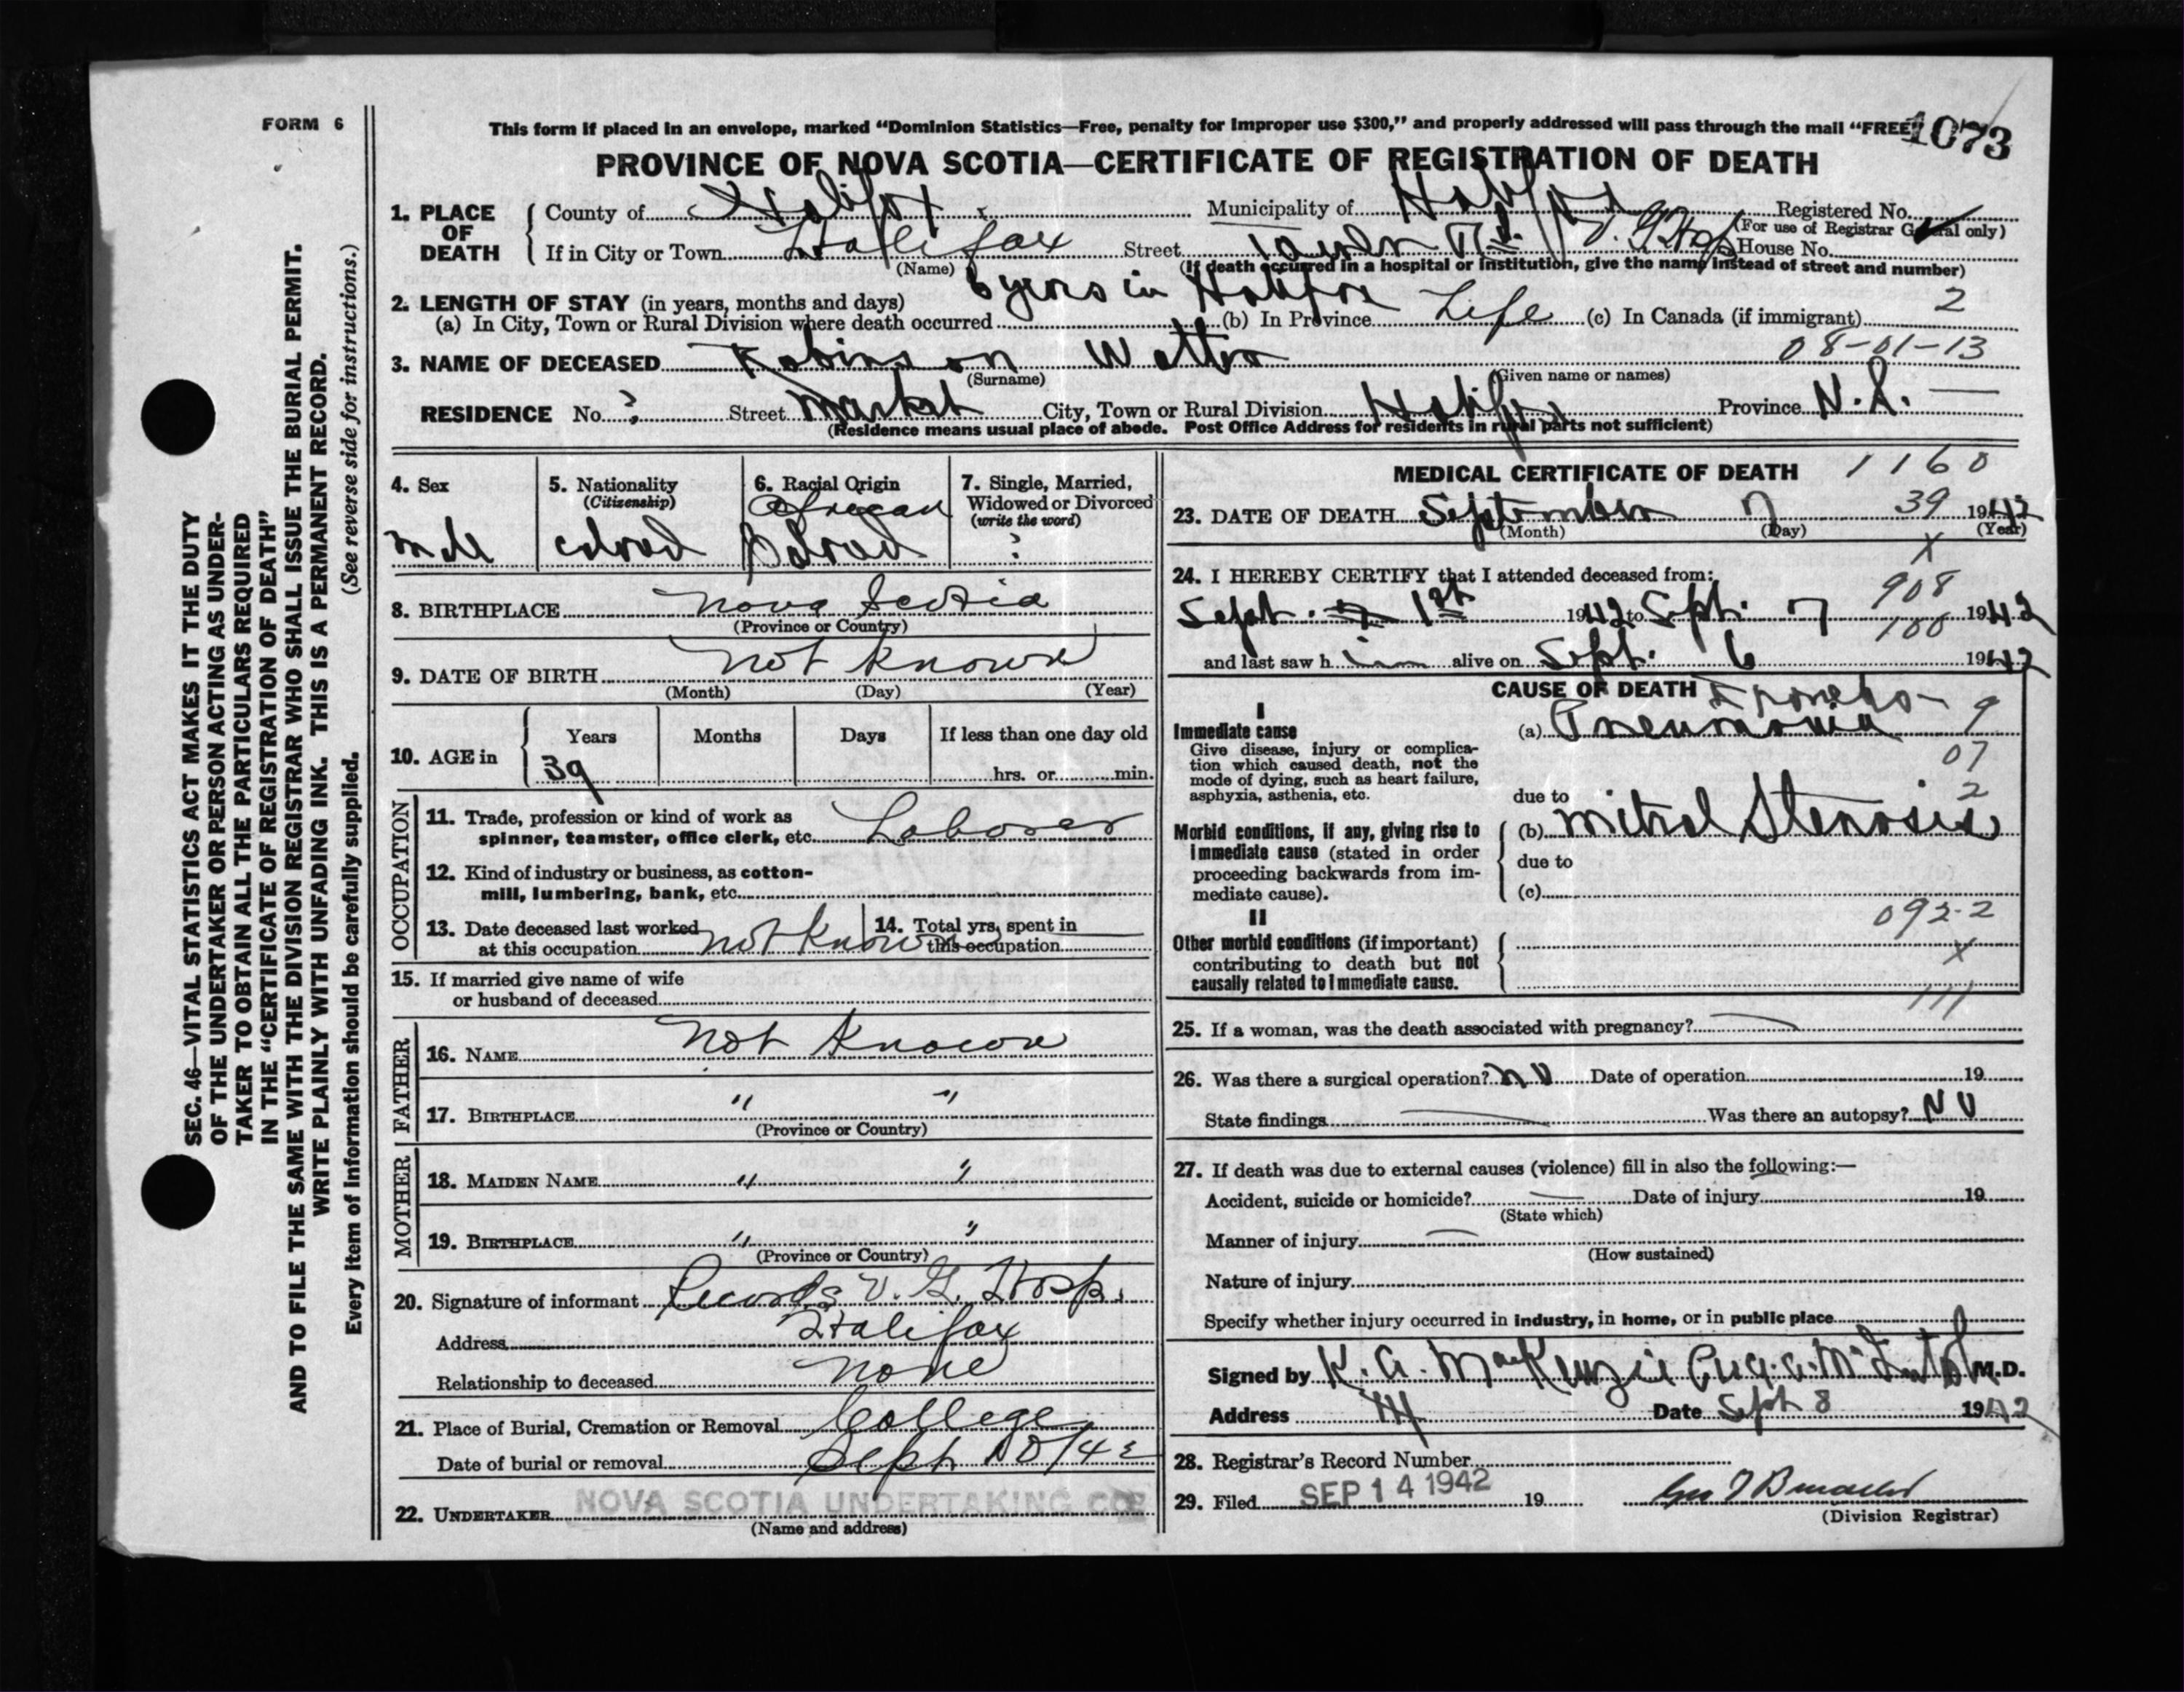 FORM 6
This form if placed in an envelope, marked “Dominion Statistics—Free, penalty for improper use $300,” and properly addressed will pass through the mail “FREE”
1073
PROVINCE OF NOVA SCOTIA—CERTIFICATE OF REGISTRATION OF DEATH
1. PLACE OF DEATH
County of Halifax Municipality of Halifax Registered No.
(For use of Registrar General only)
If in City or Town Halifax Street V. G. Hosp House No.
(Name) (If death occurred in a hospital or institution, give the name instead of street and number)
2. LENGTH OF STAY (in years, months and days) 6 years in Halifax 2
(a) In City, Town or Rural Division where death occurred (b) In Province Life (c) In Canada (if immigrant)
3. NAME OF DECEASED Robinson Walter 08-01-13
(Surname) (Given name or names)
RESIDENCE No. ? Street Market City, Town or Rural Division Halifax Province N.S. —
(Residence means usual place of abode. Post Office Address for residents in rural parts not sufficient)
4. Sex
male
5. Nationality
(Citizenship)
colored
6. Racial Origin
African
Colored
7. Single, Married,
Widowed or Divorced
(write the word)
?
8. BIRTHPLACE Nova Scotia
(Province or Country)
9. DATE OF BIRTH Not Known
(Month) (Day) (Year)
10. AGE in
Years Months Days If less than one day old
39 hrs. or min.
OCCUPATION
11. Trade, profession or kind of work as
spinner, teamster, office clerk, etc. Laborer
12. Kind of industry or business, as cotton-
mill, lumbering, bank, etc.
13. Date deceased last worked
at this occupation not Known
14. Total yrs. spent in
this occupation
15. If married give name of wife
or husband of deceased
FATHER
16. NAME Not Known
17. BIRTHPLACE " "
(Province or Country)
MOTHER
18. MAIDEN NAME " "
19. BIRTHPLACE " "
(Province or Country)
20. Signature of informant Records V. G. Hosp.
Address Halifax
Relationship to deceased None
21. Place of Burial, Cremation or Removal College
Date of burial or removal Sept 10/42
22. UNDERTAKER NOVA SCOTIA UNDERTAKING CO
(Name and address)
MEDICAL CERTIFICATE OF DEATH 1160
23. DATE OF DEATH September 7 39 1942
(Month) (Day) (Year)
X
24. I HEREBY CERTIFY that I attended deceased from:
908
Sept. 1st 1942 to Sept. 7 1942
100
and last saw him alive on Sept. 6 1942
CAUSE OF DEATH
I
Immediate cause
Give disease, injury or complica-
tion which caused death, not the
mode of dying, such as heart failure,
asphyxia, asthenia, etc.
Broncho-
(a) Pneumonia 9
07
2
due to
Morbid conditions, if any, giving rise to
immediate cause (stated in order
proceeding backwards from im-
mediate cause).
(b) Mitral Stenosis
due to
(c)
II
Other morbid conditions (if important)
contributing to death but not
causally related to immediate cause.
092-2
X
111
25. If a woman, was the death associated with pregnancy? —
26. Was there a surgical operation? NO Date of operation 19
State findings — Was there an autopsy? NO
27. If death was due to external causes (violence) fill in also the following:—
Accident, suicide or homicide? — Date of injury 19
(State which)
Manner of injury —
(How sustained)
Nature of injury
Specify whether injury occurred in industry, in home, or in public place
Signed by K. A. MacKenzie M.D.
Address Date Sept 8 1942
28. Registrar’s Record Number
29. Filed SEP 14 1942 19
(Division Registrar)
SEC. 46—VITAL STATISTICS ACT MAKES IT THE DUTY
OF THE UNDERTAKER OR PERSON ACTING AS UNDER-
TAKER TO OBTAIN ALL THE PARTICULARS REQUIRED
IN THE “CERTIFICATE OF REGISTRATION OF DEATH”
AND TO FILE THE SAME WITH THE DIVISION REGISTRAR WHO SHALL ISSUE THE BURIAL PERMIT.
WRITE PLAINLY WITH UNFADING INK. THIS IS A PERMANENT RECORD.
Every item of information should be carefully supplied. (See reverse side for instructions.)